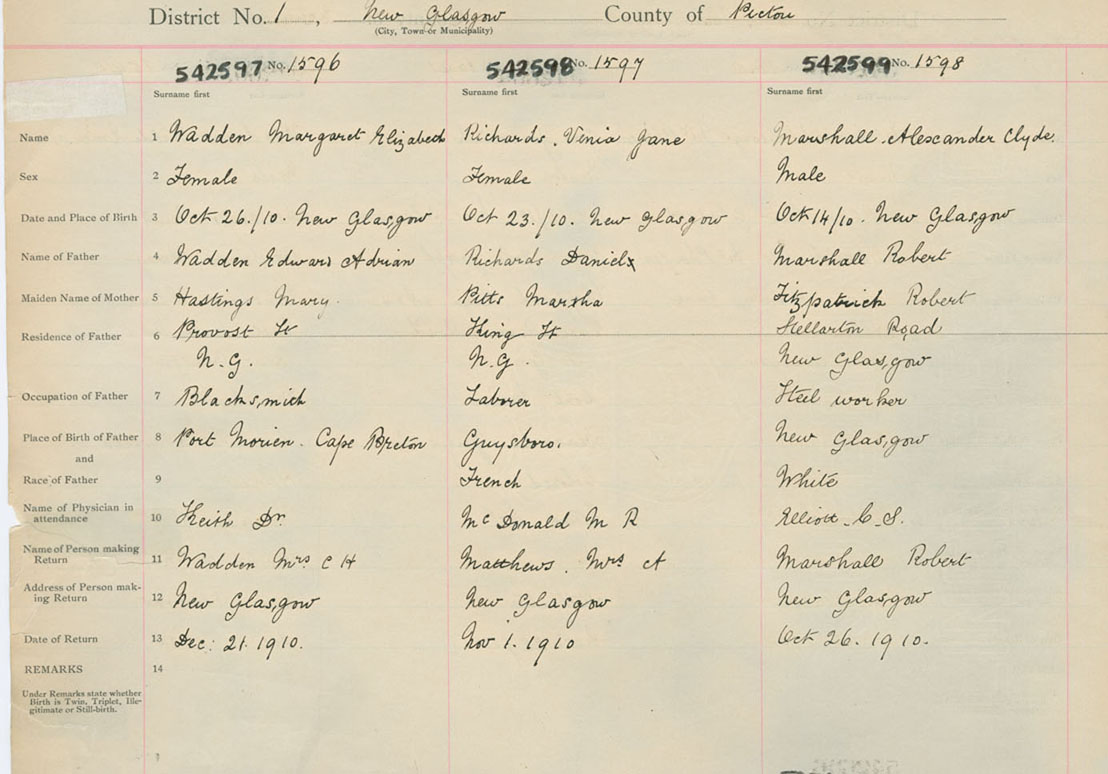 District No. 1, New Glasgow County of Pictou
(City, Town or Municipality)
542597 No. 1596 542598 No. 1597 542599 No. 1598
Surname first Surname first Surname first
Name 1 Wadden Margaret Elizabeth Richards. Venia Jane Marshall. Alexander Clyde.
Sex 2 Female Female Male
Date and Place of Birth 3 Oct 26./10. New Glasgow Oct 23./10. New Glasgow Oct 14/10. New Glasgow
Name of Father 4 Wadden Edward Adrian Richards Daniel Marshall Robert
Maiden Name of Mother 5 Hastings Mary. Pitts Martha Fitzpatrick Robert
Residence of Father 6 Provost St King St Stellarton Road
N.G. N.G. New Glasgow
Occupation of Father 7 Blacksmich Laborer Steel worker
Place of Birth of Father 8 Port Morien. Cape Breton Guysboro. New Glasgow
and
Race of Father 9 French White
Name of Physician in
attendance 10 Keith Dr. McDonald M R Elliott. C. S.
Name of Person making
Return 11 Wadden Mrs C H Matthews. Mrs A Marshall Robert
Address of Person mak-
ing Return 12 New Glasgow New Glasgow New Glasgow
Date of Return 13 Dec: 21. 1910. Nov 1. 1910 Oct 26. 1910.
REMARKS 14
Under Remarks state whether
Birth is Twin, Triplet, Ille-
gitimate or Still-birth.